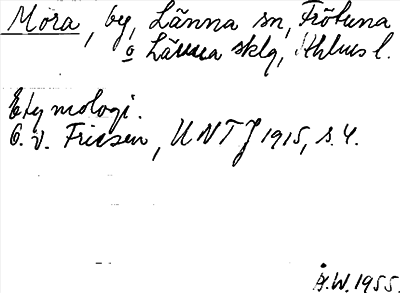 Mora, by, Länna sn, Frötuna
o Länna sklg, Sthlms l.
Etymologi.
O. v. Friesen, UNTJ 1915, s. 4.
H.W. 1955.